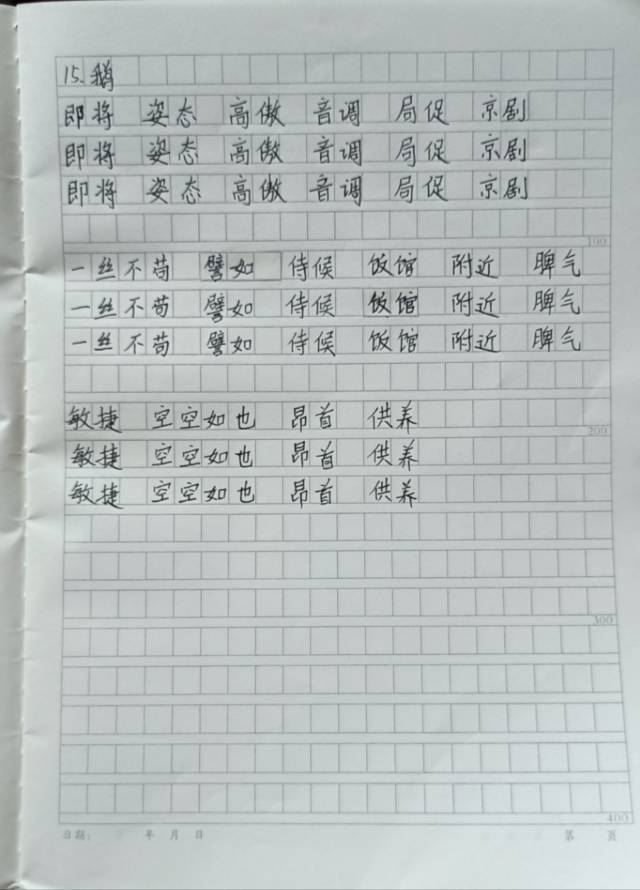 15.鹅
即将 姿态 高傲 音调 局促 京剧
即将 姿态 高傲 音调 局促 京剧
即将 姿态 高傲 音调 局促 京剧
100
一丝不苟 譬如 侍候 饭馆 附近 脾气
一丝不苟 譬如 侍候 饭馆 附近 脾气
一丝不苟 譬如 侍候 饭馆 附近 脾气
敏捷 空空如也 昂首 供养
200
敏捷 空空如也 昂首 供养
敏捷 空空如也 昂首 供养
300
400
日期： 年 月 日 第 页